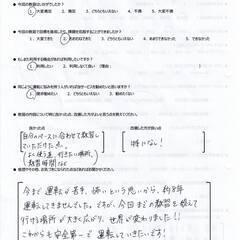 ● 今回の教習はいかがでしたか？
1. 大変満足 2. 満足 3. どちらともいえない 4. 不満 5. 大変不満
1. 大変できた 2. まあまあできた 3. どちらともいえない 4. あまりできなかった 5. できなかった
1. 利用したい 2. 利用しなくて良い (理由: )
3. どちらともいえない
良かった点
改善した方が良い点
自分のペースに合わせて教習し
ていただけた点。
よく使う道、行きたい場所、
教習時間など
特になし！
今まで運転が苦手、怖いという思いから、約8年
運転してきませんでした。ですが、今回までの教習を終えて
行ける場所が大きく広がり、世界が変わりました!!
これからも安全第一で運転していきたいです！